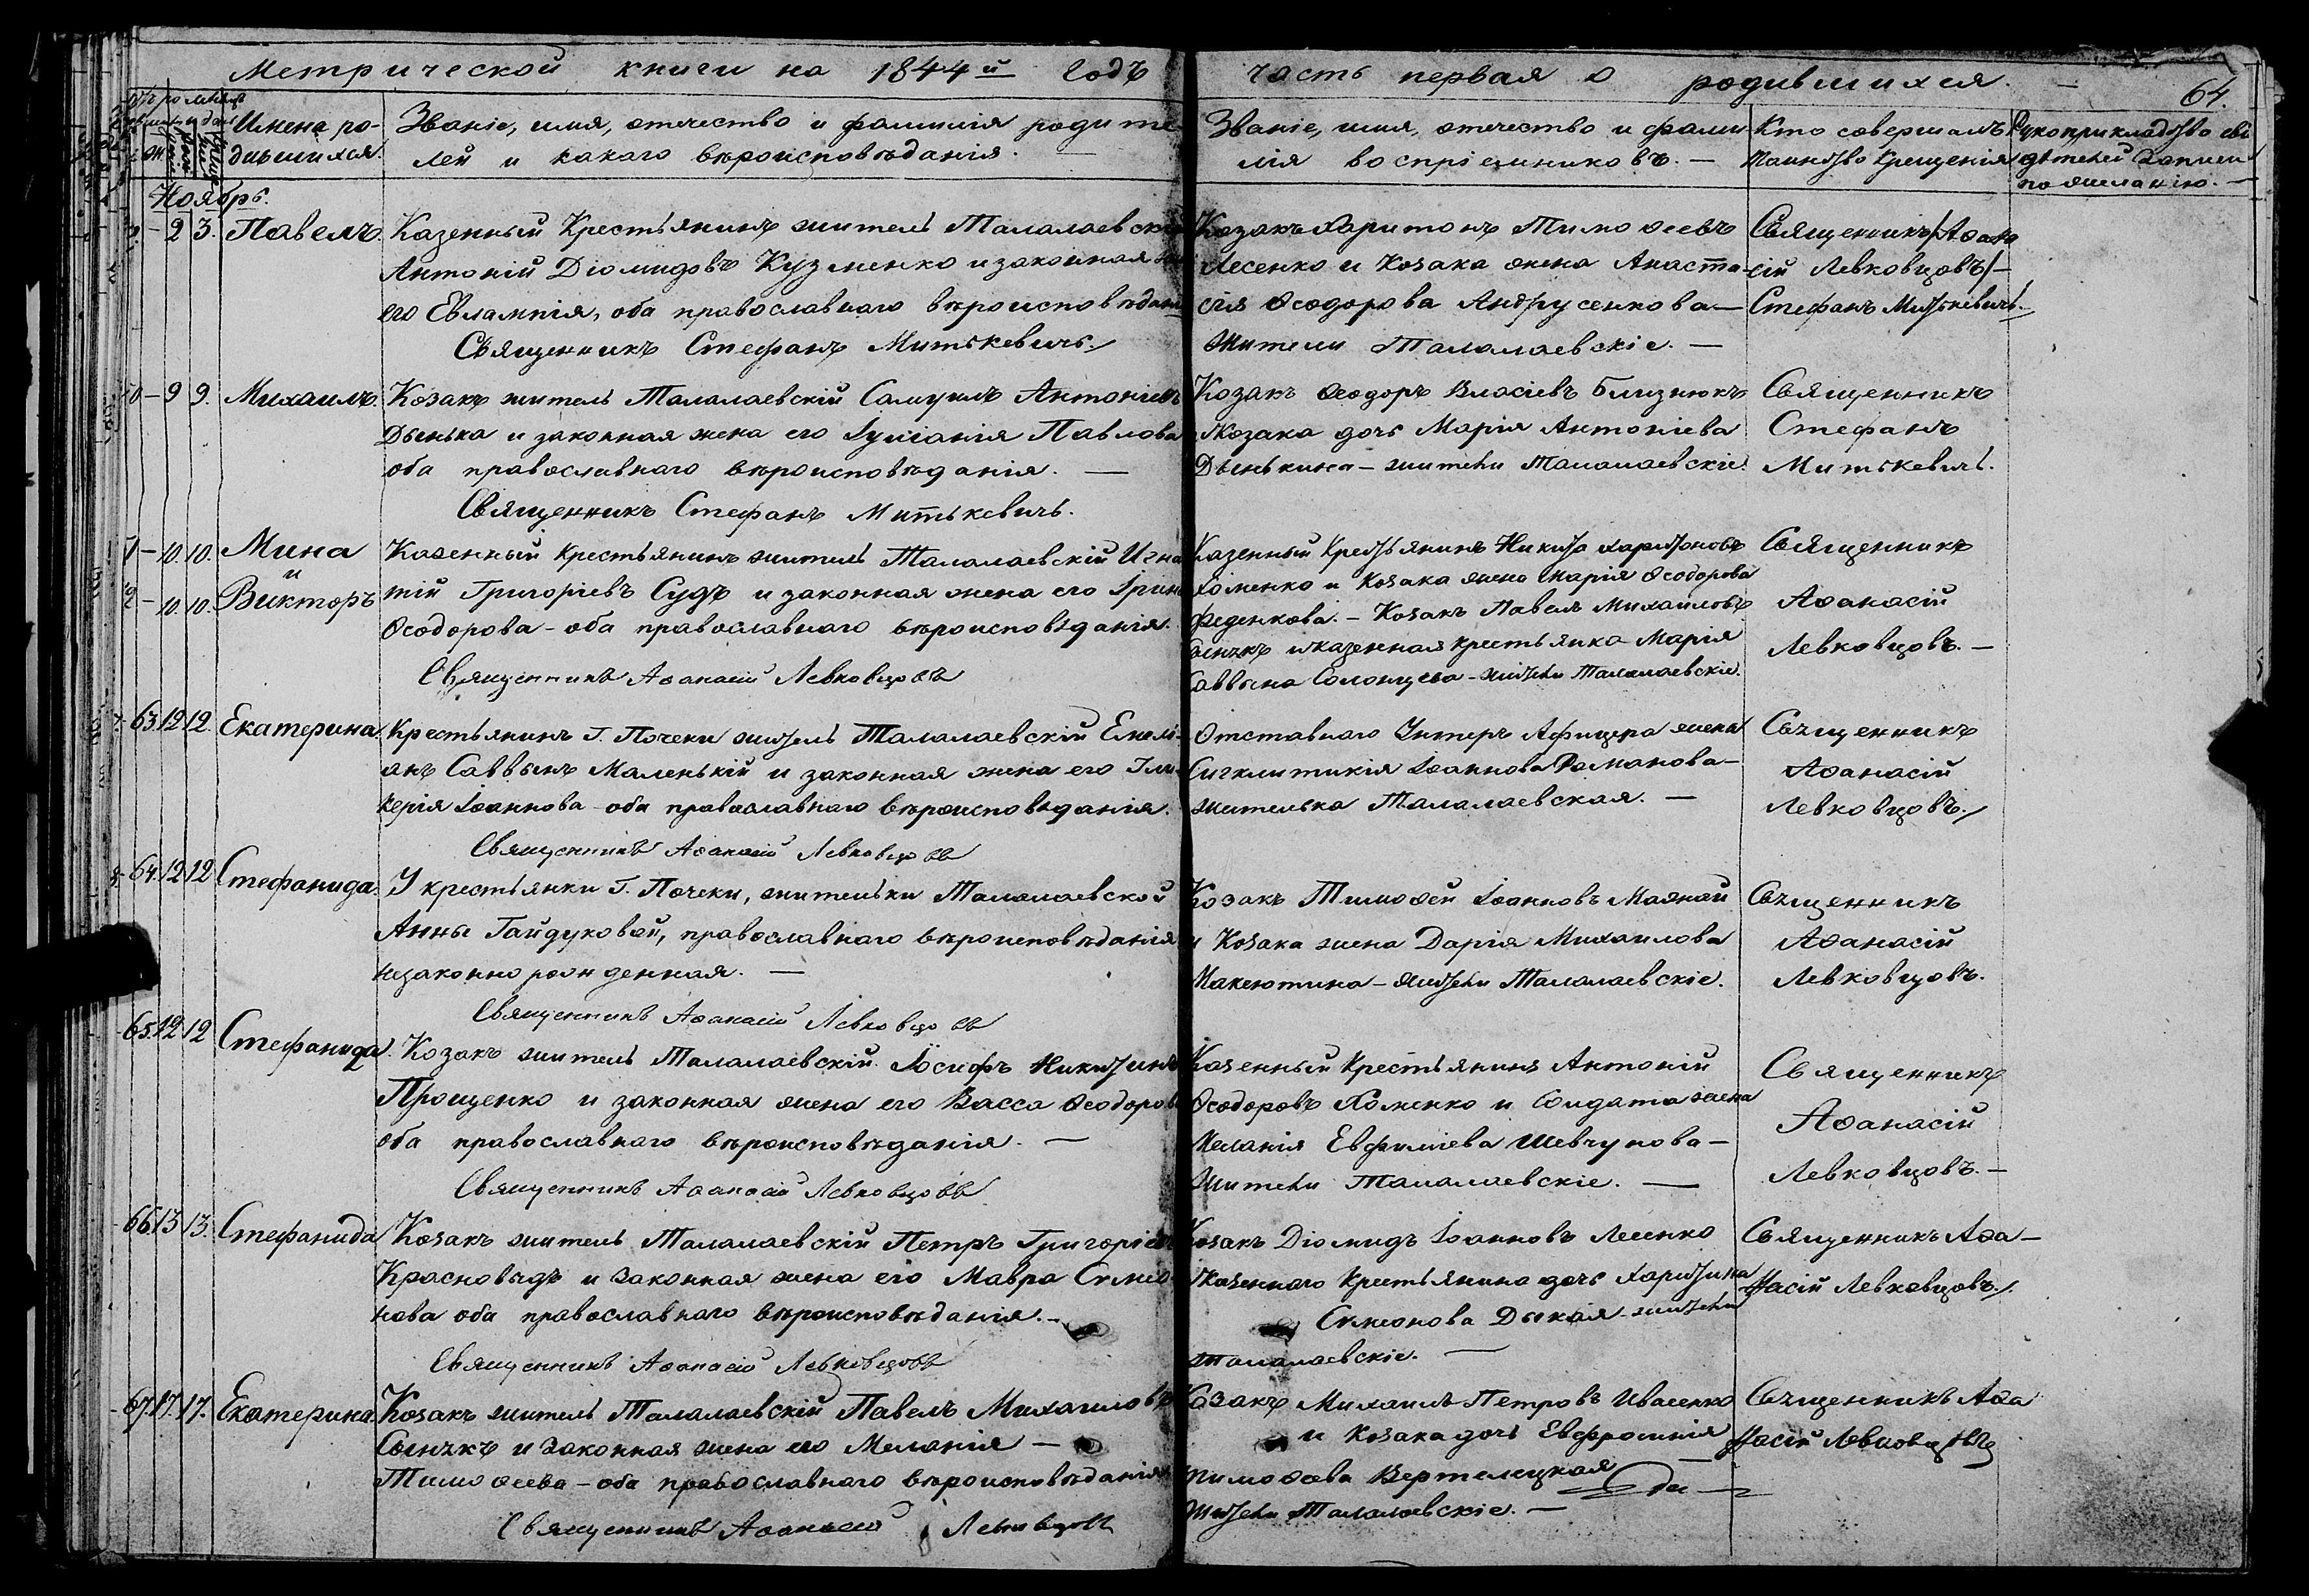 Метрической книги на 1844й годъ часть первая о родившихся.
64.
Имена ро-
дившихся.
Званіе, имя, отечество и фамилія родите-
лей и какого вѣроисповѣданія. —
Званіе, имя, отечество и фами
лія воспріемниковъ. —
Кто совершалъ
таинство крещенія
Рукоприкладство сви
дѣтелей записи
по желанію. —
Ноябрь.
- 2 3. Павелъ.
Казенный Крестьянинъ житель Талалаевскій
Антоній Діомидовъ Кузменко и законная
его Евлампія, оба православнаго вѣроисповѣдан
Священникъ Стефанъ Митькевичь
Козакъ Харитонъ Тимоѳеевъ
Лесенко и Козака жена Анаста-
сія Ѳеодорова Андрусенкова —
Жители Талалаевскіе. —
Священникъ Аѳана
сій Левковцовъ —
Стефанъ Митькевичь.
— 9 9. Михаилъ.
Козакъ житель Талалаевскій Самуилъ Антоніевъ
Дынька и законная жена его Іуліанія Павлова
оба православнаго вѣроисповѣданія. —
Священникъ Стефанъ Митькевичь.
Козакъ Ѳеодоръ Власіевъ Близнюкъ
и Козака дочь Марія Антоніева
Дынькина — жители Талалаевскіе.
Священникъ
Стефанъ
Митькевичь.
— 10. 10. Мина
и
— 10. 10. Викторъ
Казенный крестьянинъ житель Талалаевскій Игна
тій Григоріевъ Судъ и законная жена его Ірин
Ѳеодорова — оба православнаго вѣроисповѣданія.
Священникъ Аѳанасій Левковцовъ
Казенный Крестьянинъ Никита Харитоновъ
Хоменко и Козака жена Марія Ѳеодорова
Феденкова. — Козакъ Павелъ Михаиловъ
и казенная крестьянка Марія
Саввина — жители Талалаевскіе.
Священникъ
Аѳанасій
Левковцовъ. —
63. 12 12. Екатерина.
Крестьянинъ Г. Почеки житель Талалаевскій Емелі-
анъ Саввинъ Маленькій и законная жена его Гли
керія Іоаннова — оба православнаго вѣроисповѣданія.
Священникъ Аѳанасій Левковцовъ
Отставнаго Унтеръ Афицера жена
Сигклитикія Іоаннова Романова —
жителька Талалаевская. —
Священникъ
Аѳанасій
Левковцовъ.
64. 12 12 Стефанида.
У крестьянки Г. Почеки, жительки Талалаевской
Анны Гайдуковой, православнаго вѣроисповѣданія
незаконнорожденная. —
Священникъ Аѳанасій Левковцовъ
Козакъ Тимоѳей Іоанновъ
и Козака жена Дарія Михаилова
Макеютина — жители Талалаевскіе.
Священникъ
Аѳанасій
Левковцовъ.
65. 12 12 Стефанида.
Козакъ житель Талалаевскій Іосифъ Никитинъ
Прощенко и законная жена его Васса Ѳеодоров
оба православнаго вѣроисповѣданія. —
Священникъ Аѳанасій Левковцовъ
Казенный Крестьянинъ Антоній
Ѳеодоровъ Хоменко и Солдата жена
Меланія Евфиміева Шевчукова —
Жители Талалаевскіе. —
Священникъ
Аѳанасій
Левковцовъ. —
66. 13 13. Стефанида
Козакъ житель Талалаевскій Петръ Григоріев
Красновидъ и законная жена его Мавра Симео
нова оба православнаго вѣроисповѣданія. —
Священникъ Аѳанасій Левковцовъ
Козакъ Діомидъ Іоанновъ Лесенко
и Казеннаго Крестьянина дочь Харитина
Симеонова Дикая — жители
Талалаевскіе. —
Священникъ Аѳа-
насій Левковцовъ.
67. 17. 17. Екатерина.
Козакъ житель Талалаевскій Павелъ Михаиловъ
и законная жена его Меланія —
Тимоѳеева — оба православнаго вѣроисповѣданія
Священникъ Аѳанасій Левковцовъ
Козакъ Михаилъ Петровъ Ивасенко
и Козака дочь Евфросинія
Тимоѳеева Вертелецкая
Жители Талалаевскіе. —
Священникъ Аѳа
насій Левковцовъ